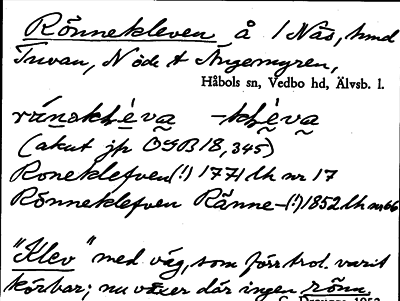 Rönnekleven å /Näs, hmd
Tuvan, N öde t Ängemyren,
Håbols sn, Vedbo hd, Älvsb. l.
(akut jp OGB 18, 345)
Roneklefven (!) 1771 lh nr 17
Rönneklefven Ränne-(!) 1852 lh nr 66
"Klev" med väg, som förr trol. varit
körbar; nu växer där ingen rönn.